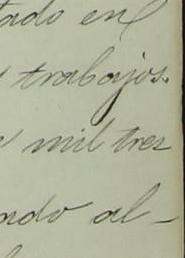 tado en
trabajos.
mil tres
ndo al-